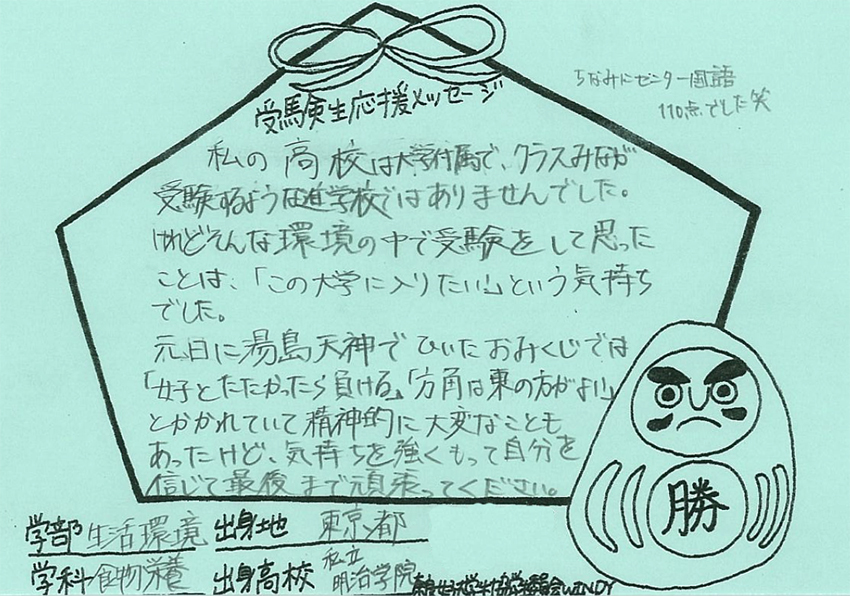 ちなみにセンター国語
110点でした笑
受験生応援メッセージ
私の高校は大学付属で、クラスみなが
受験するような進学校ではありませんでした。
けれどそんな環境の中で受験をして思った
ことは、「この大学に入りたい」という気持ち
でした。
元日に湯島天神でひいたおみくじでは
「女子とたたかったら負ける」「方角は東の方がよい」
とかかれていて精神的に大変なことも
あったけど、気持ちを強くもって自分を
信じて最後まで頑張ってください。
勝
学部 生活環境 出身地 東京都
学科 食物栄養 出身高校 私立
明治学院
奈良女子大学生協学生委員会WINDY